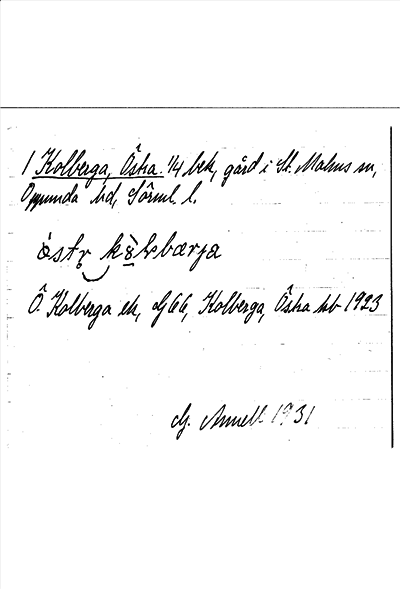 1 Kolberga, Östra. 1/4 bek, gård i St. Malms sn,
Oppunda hd, Sörml. l.
östr kolbærja
Ö. Kolberga ek, dJ 66, Kolberga, Östra kb 1923
G. Annell 1931